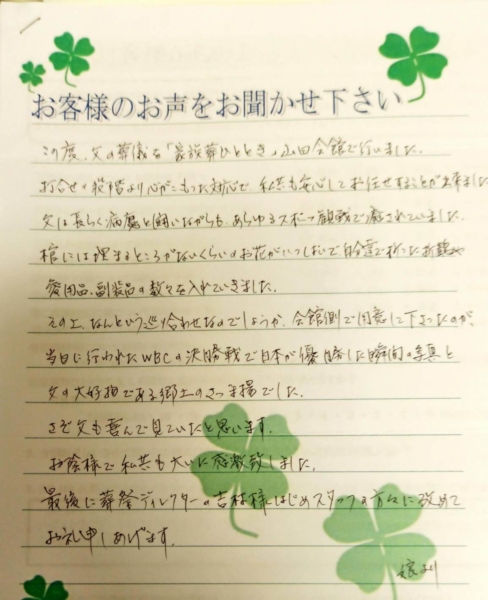 お客様のお声をお聞かせ下さい
この度、父の葬儀を「家族葬ひととき」山田会館で行いました。
打合せの段階より心がこもった対応で、私共も安心してお任せすることが出来ました。
父は長らく病魔と闘いながらも、あらゆるスポーツ観戦で癒されていました。
棺には埋まるところがないくらいのお花がいっぱいで自分達で折った折鶴や
愛用品、副装品の数々を入れていきました。
その上、なんという巡り合わせなのでしょうか、会館側で用意して下さったのが、
当日に行われたWBCの決勝戦で日本が優勝した瞬間の写真と
父の大好物である郷土のさつま揚でした。
さぞ父も喜んで見ていたと思います。
お陰様で私共も大いに感激致しました。
最後に葬祭ディレクターの吉林様はじめスタッフの方々に改めて
お礼申しあげます。
より